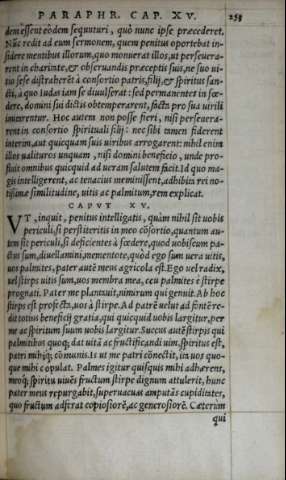 PARAPHR. CAP. XV. 258
dem essent eôdem sequuturi, quò nunc ipse præcederet.
Nũc redit ad eum sermonem, quem penitus oportebat in-
sidere mentibus illorum, quo monuerat illos, ut perseuera-
rent in charitate, & obseruandis præceptis suis, ne suo ui-
tio sese distraherẽt à consortio patris, filij, & spiritus san-
cti, à quo Iudas iam se diuulserat: sed permanentes in fœ-
dere, domini sui dictis obtemperarent, factis pro sua uirili
imitarentur. Hoc autem non posse fieri, nisi perseuera-
rent in consortio spirituali sibi: nec sibi tamen fiderent
interim, aut quicquam suis uiribus arrogarent: nihil enim
illos ualituros unquam, nisi domini beneficio, unde pro-
fluit omnibus quicquid ad ueram salutem facit. Id quo ma-
gis intelligerent, ac tenacius meminissent, adhibita rei no-
tissima similitudine, uitis ac palmitum, rem explicat.
CAPVT XV.
VT, inquit, penitus intelligatis, quàm nihil sit uobis
periculi, si perstiteritis in meo cõsortio, quantum au-
tem sit periculi, si deficientes à fœdere, quod uobiscum pa-
ctus sum, diuellamini, mementote, quòd ego sum uera uitis,
uos palmites, pater autẽ meus agricola est. Ego uel radix,
uel stirps uitis sum, uos membra mea, ceu palmites è stirpe
prognati. Pater me plantauit, nimirum qui genuit. Ab hoc
stirps est profecta, uos à stirpe. Ad patrẽ uelut ad fontẽ re-
dit totius beneficij gratia, qui quicquid uobis largitur, per
me ac spiritum suum uobis largitur. Succus autẽ stirpis qui
palmitibus quoq; dat uitã ac fructificandi uim, spiritus est,
patri mihiq; cõmunis. Is ut me patri cõnectit, ita uos quo-
que mihi copulat. Palmes igitur quisquis mihi adhærens,
meoq; spiritu uiuẽs fructum stirpe dignum attulerit, hunc
pater meus repurgabit, superuacuas amputãs cupiditates,
quo fructum adferat copiosiorẽ, ac generosiorẽ. Cæterùm
qui